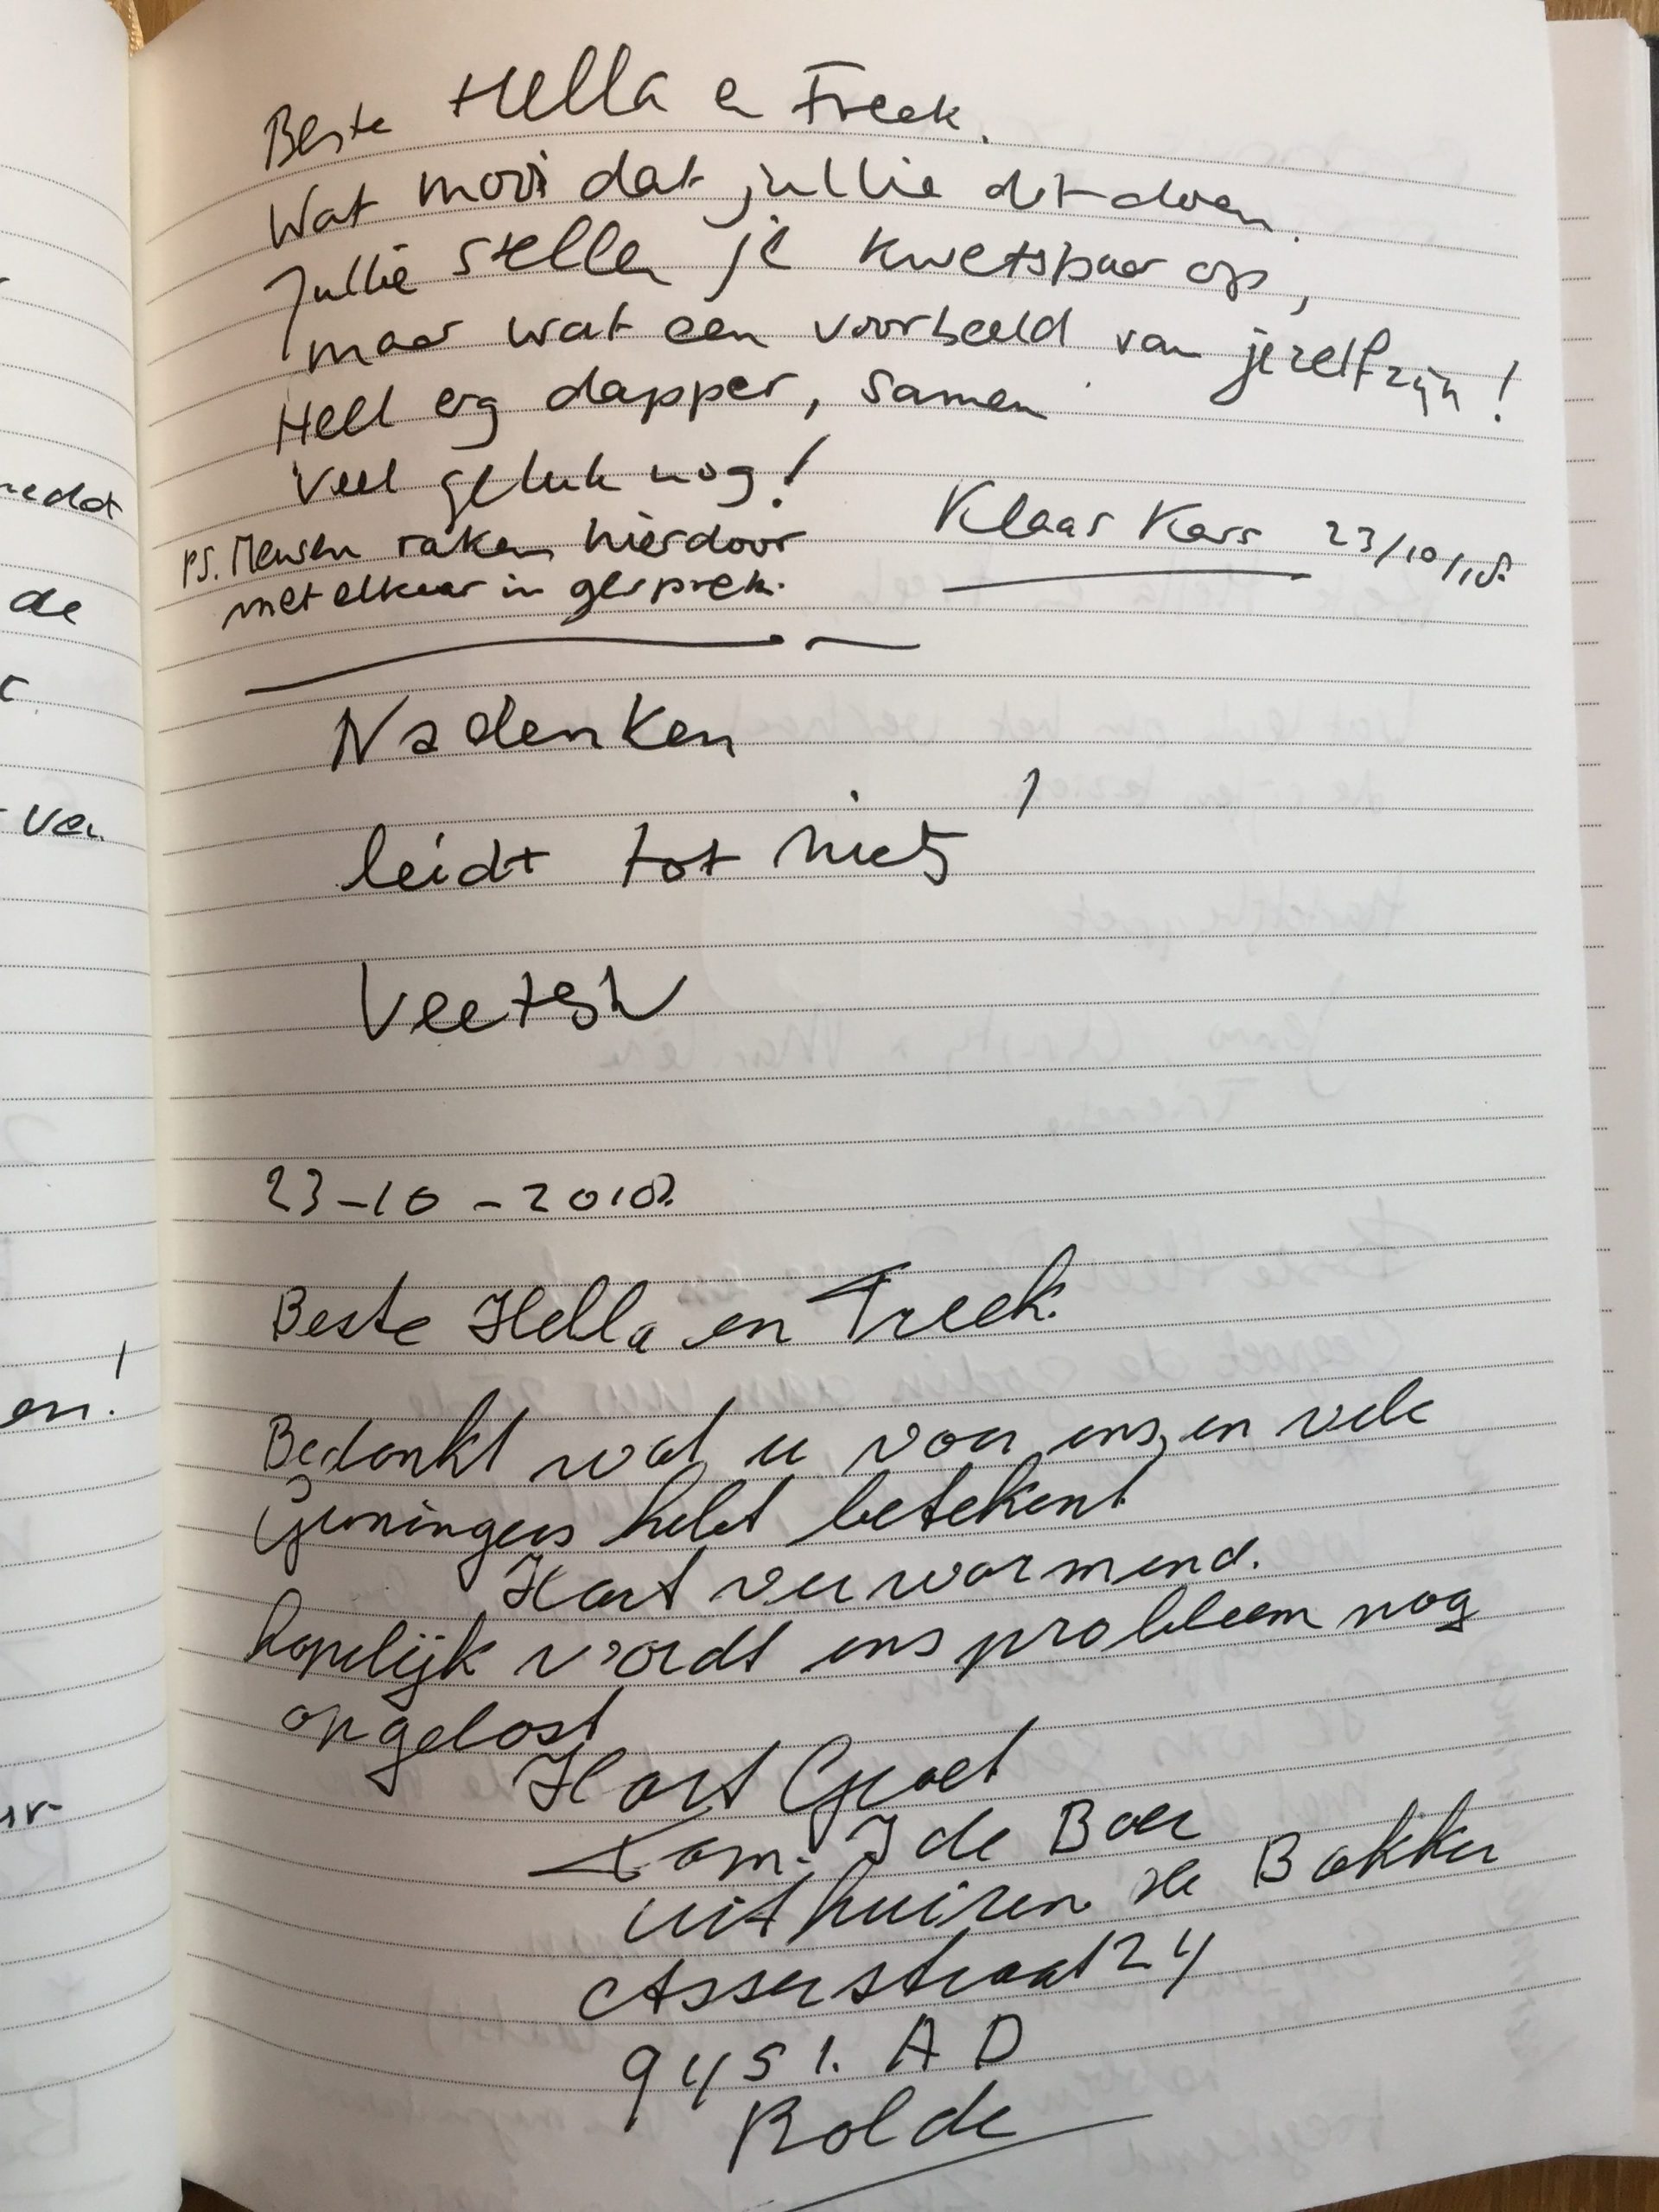 Beste Hella en Freek.
Wat mooi dat jullie dit doen.
Jullie stellen je kwetsbaar op,
maar wat een voorbeeld van jezelf zijn!
Heel erg dapper, samen
Veel geluk nog!
Klaas Kars 23/10/18.
PS. Mensen raken hierdoor
met elkaar in gesprek.
Nadenken
leidt tot niets!
23-10-2018
Beste Hella en Freek.
Bedankt wat u voor ons, en vele
Groningers hebt betekent
Hart verwarmend.
hopelijk wordt ons probleem nog
opgelost
Hart Groet
Fam. J de Boer
uithuizen de Bakker
Asserstraat 24
9451. AD
Rolde
redt
de
ver
en!